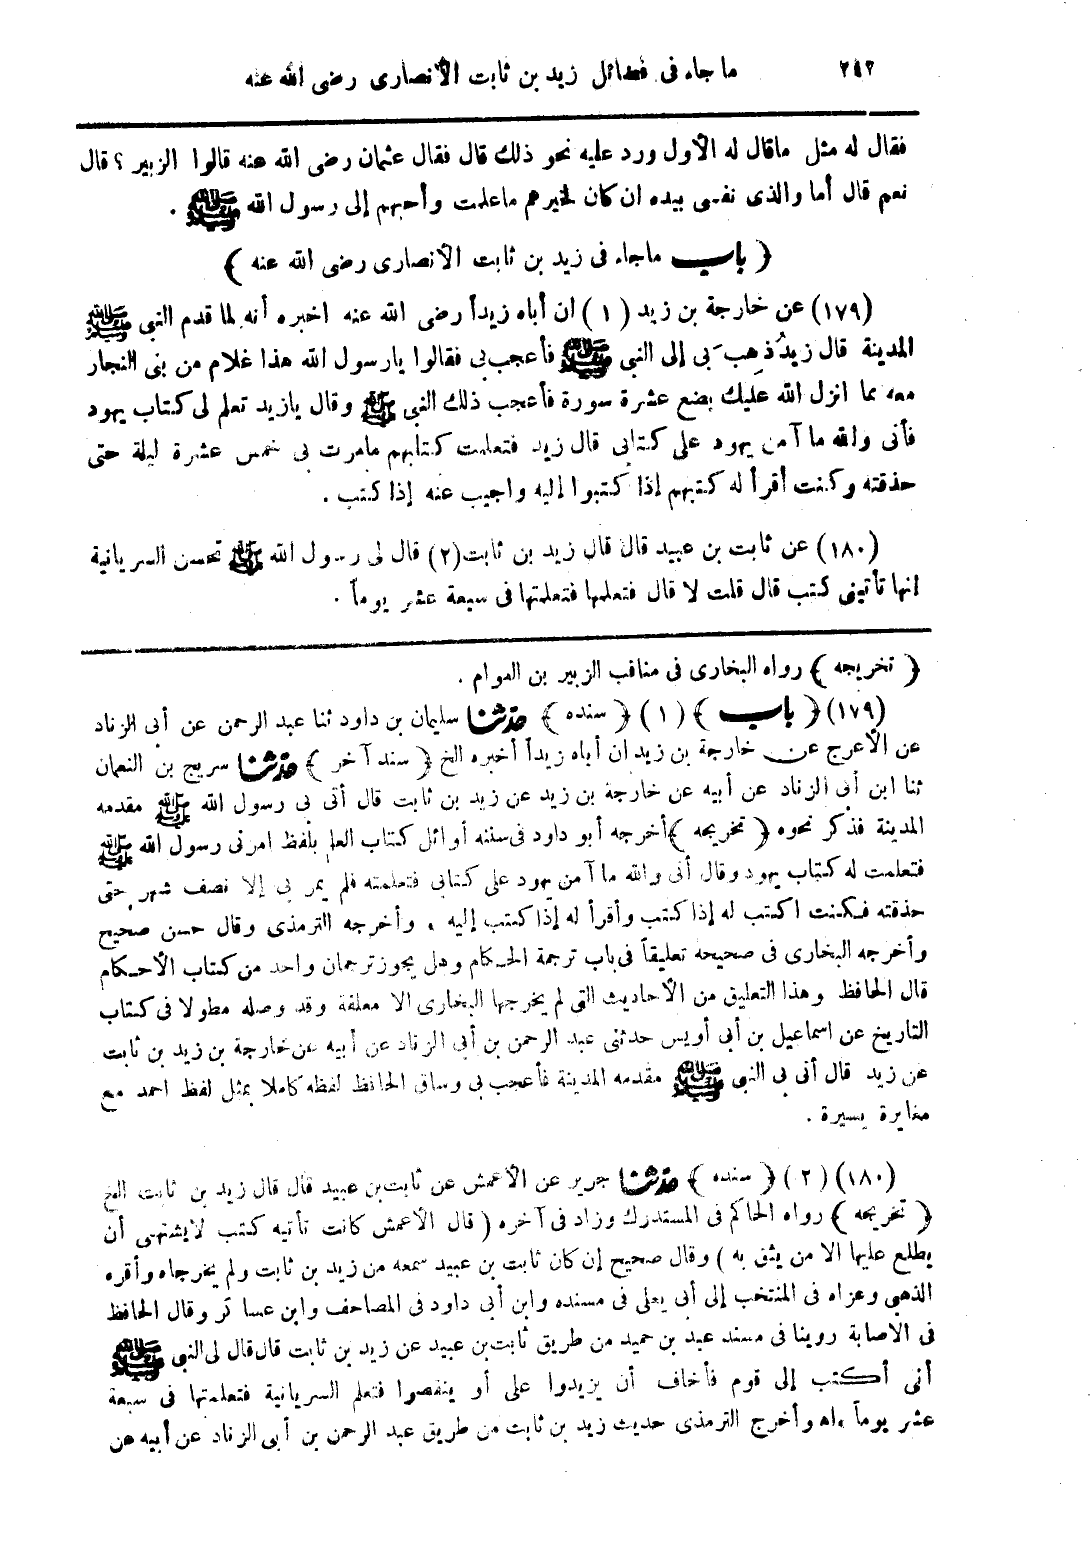 ٢٤٢ ما جاء فى فضائل زيد بن ثابت الأنصارى رضى الله عنه
فقال له مثل ماقال له الأول ورد عليه نحو ذلك قال فقال عثمان رضى الله عنه قالوا الزبير ؟ قال
نعم قال أما والذى نفسى بيده ان كان لخيرهم ماعلمت وأحبهم إلى رسول الله ﷺ .
﴿ باب ماجاء فى زيد بن ثابت الأنصارى رضى الله عنه ﴾
(١٧٩) عن خارجة بن زيد (١) ان أباه زيداً رضى الله عنه اخبره أنه لما قدم النبى ﷺ
المدينة قال زيدٌ ذهب بى إلى النبى ﷺ فأعجب بى فقالوا يارسول الله هذا غلام من بنى النجار
معه مما انزل الله عليك بضع عشرة سورة فأعجب ذلك النبى ﷺ وقال يازيد تعلم لى كتاب يهود
فأنى والله ما آمن يهود على كتابى قال زيد فتعلمت كتابهم مامرت بى خمس عشرة ليلة حتى
حذقته وكنت أقرأ له كتبهم إذا كتبوا إليه واجيب عنه إذا كتب .
(١٨٠) عن ثابت بن عبيد قال قال زيد بن ثابت(٢) قال لى رسول الله ﷺ تحسن السريانية
انها تأتينى كتب قال قلت لا قال فتعلمها فتعلمتها فى سبعة عشر يوماً .
﴿ تخريجه ﴾ رواه البخارى فى مناقب الزبير بن العوام .
(١٧٩) ﴿ باب ﴾ (١) ﴿ سنده ﴾ حدثنا سليمان بن داود ثنا عبد الرحمن عن أبى الزناد
عن الأعرج عن خارجة بن زيد ان أباه زيداً أخبره الخ ﴿ سند آخر ﴾ حدثنا سريج بن النعمان
ثنا ابن أبى الزناد عن أبيه عن خارجة بن زيد عن زيد بن ثابت قال أتى بى رسول الله ﷺ مقدمه
المدينة فذكر نحوه ﴿ تخريجه ﴾ أخرجه أبو داود فى سننه أوائل كتاب العلم بلفظ امرنى رسول الله ﷺ
فتعلمت له كتاب يهود وقال أنى والله ما آمن يهود على كتابى فتعلمته فلم يمر بى إلا نصف شهر حتى
حذقته فكنت اكتب له إذا كتب وأقرأ له إذا كتب إليه ، وأخرجه الترمذى وقال حسن صحيح
وأخرجه البخارى فى صحيحه تعليقاً فى باب ترجمة الحكام وهل يجوز ترجمان واحد من كتاب الأحكام
قال الحافظ وهذا التعليق من الأحاديث التى لم يخرجها البخارى الا معلقة وقد وصله مطولا فى كتاب
التاريخ عن اسماعيل بن أبى أويس حدثنى عبد الرحمن بن أبى الزناد عن أبيه عن خارجة بن زيد بن ثابت
عن زيد قال أتى بى النبى ﷺ مقدمه المدينة فأعجب بى وساق الحافظ لفظه كاملا بمثل لفظ احمد مع
مغايرة يسيرة .
(١٨٠) (٢) ﴿ سنده ﴾ حدثنا جرير عن الأعمش عن ثابت بن عبيد قال قال زيد بن ثابت الخ
﴿ تخريجه ﴾ رواه الحاكم فى المستدرك وزاد فى آخره ( قال الأعمش كانت تأتيه كتب لايشتهى أن
يطلع عليها الا من يثق به ) وقال صحيح إن كان ثابت بن عبيد سمعه من زيد بن ثابت ولم يخرجاه وأقره
الذهبى وعزاه فى المنتخب إلى أبى يعلى فى مسنده وابن أبى داود فى المصاحف وابن عساكر وقال الحافظ
فى الاصابة روينا فى مسند عبد بن حميد من طريق ثابت بن عبيد عن زيد بن ثابت قال قال لى النبى ﷺ
أنى أكتب إلى قوم فأخاف أن يزيدوا على أو ينقصوا فتعلم السريانية فتعلمتها فى سبعة
عشر يوماً ،اه وأخرج الترمذى حديث زيد بن ثابت من طريق عبد الرحمن بن أبى الزناد عن أبيه عن